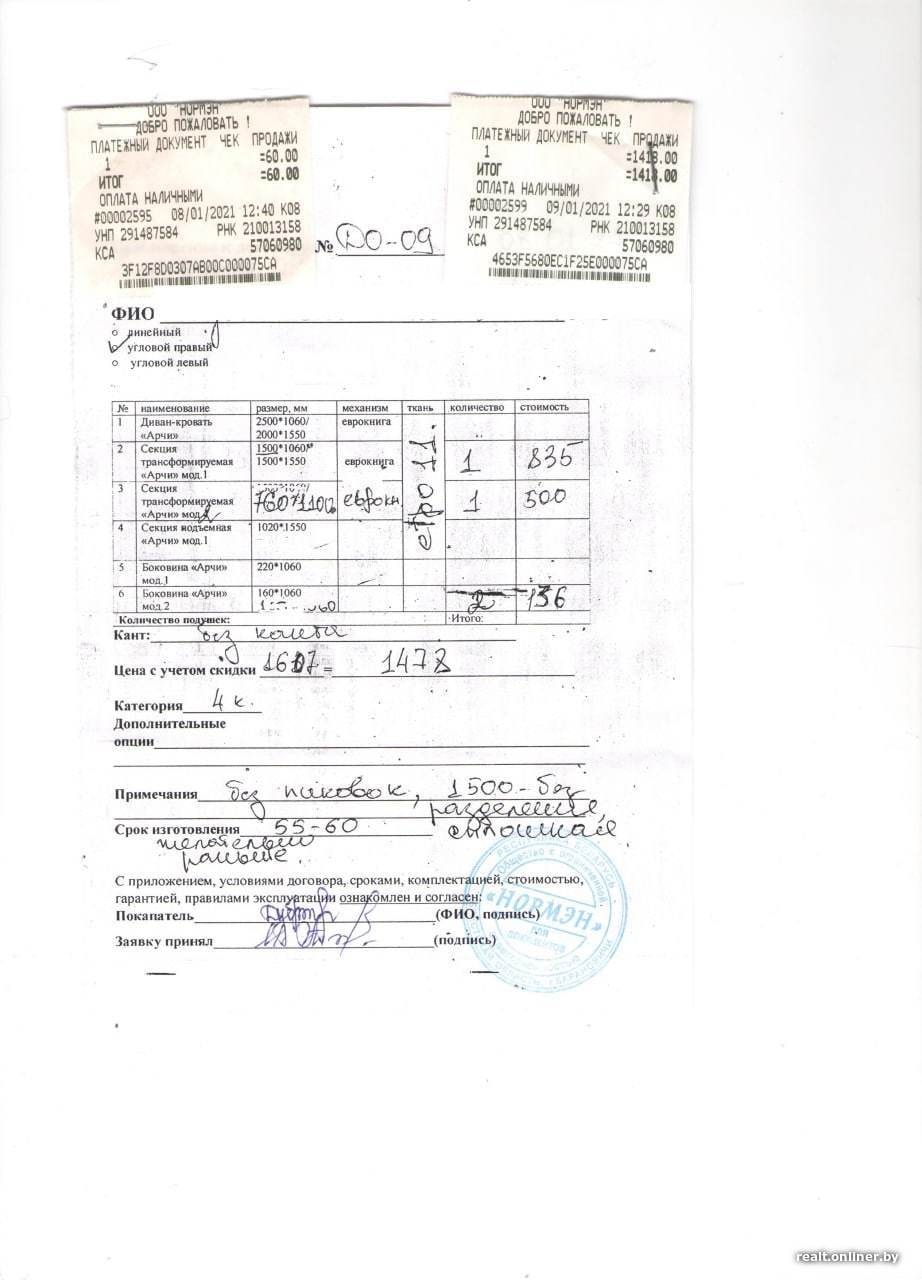 ООО "НОРМЭН"
ДОБРО ПОЖАЛОВАТЬ !
ПЛАТЕЖНЫЙ ДОКУМЕНТ ЧЕК ПРОДАЖИ
1 =60.00
ИТОГ =60.00
ОПЛАТА НАЛИЧНЫМИ
#00002595 08/01/2021 12:40 К08
УНП 291487584 РНК 210013158
КСА 57060980
3F12F8D0307AB00C000075CA
ООО "НОРМЭН"
ДОБРО ПОЖАЛОВАТЬ !
ПЛАТЕЖНЫЙ ДОКУМЕНТ ЧЕК ПРОДАЖИ
1 =1418.00
ИТОГ =1418.00
ОПЛАТА НАЛИЧНЫМИ
#00002599 09/01/2021 12:29 К08
УНП 291487584 РНК 210013158
КСА 57060980
4653F5680EC1F25E000075CA
№ DO-09
ФИО
линейный
угловой правый
угловой левый
№ наименование размер, мм механизм ткань количество стоимость
1 Диван-кровать 2500*1060/ еврокнига
«Арчи» 2000*1550
2 Секция 1500*1060/
трансформируемая 1500*1550 еврокнига 1 835
«Арчи» мод.1
3 Секция
трансформируемая 760*1100 еврокн. 1 500
«Арчи» мод.2
4 Секция подъемная 1020*1550
«Арчи» мод.1
5 Боковина «Арчи» 220*1060
мод.1
6 Боковина «Арчи» 160*1060 2 136
мод.2
Количество подушек: Итого:
Кант: без канта
Цена с учетом скидки 1617 = 1478
Категория 4 к.
Дополнительные
опции
Примечания без пиковок, 1500 - без
разделения,
Срок изготовления 55-60 сплошная
желательно
раньше.
С приложением, условиями договора, сроками, комплектацией, стоимостью,
гарантией, правилами эксплуатации ознакомлен и согласен:
Покапатель (ФИО, подпись)
Заявку принял (подпись)
РЕСПУБЛИКА БЕЛАРУСЬ
«НОРМЭН»
ДЛЯ
ДОКУМЕНТОВ
realt.onliner.by